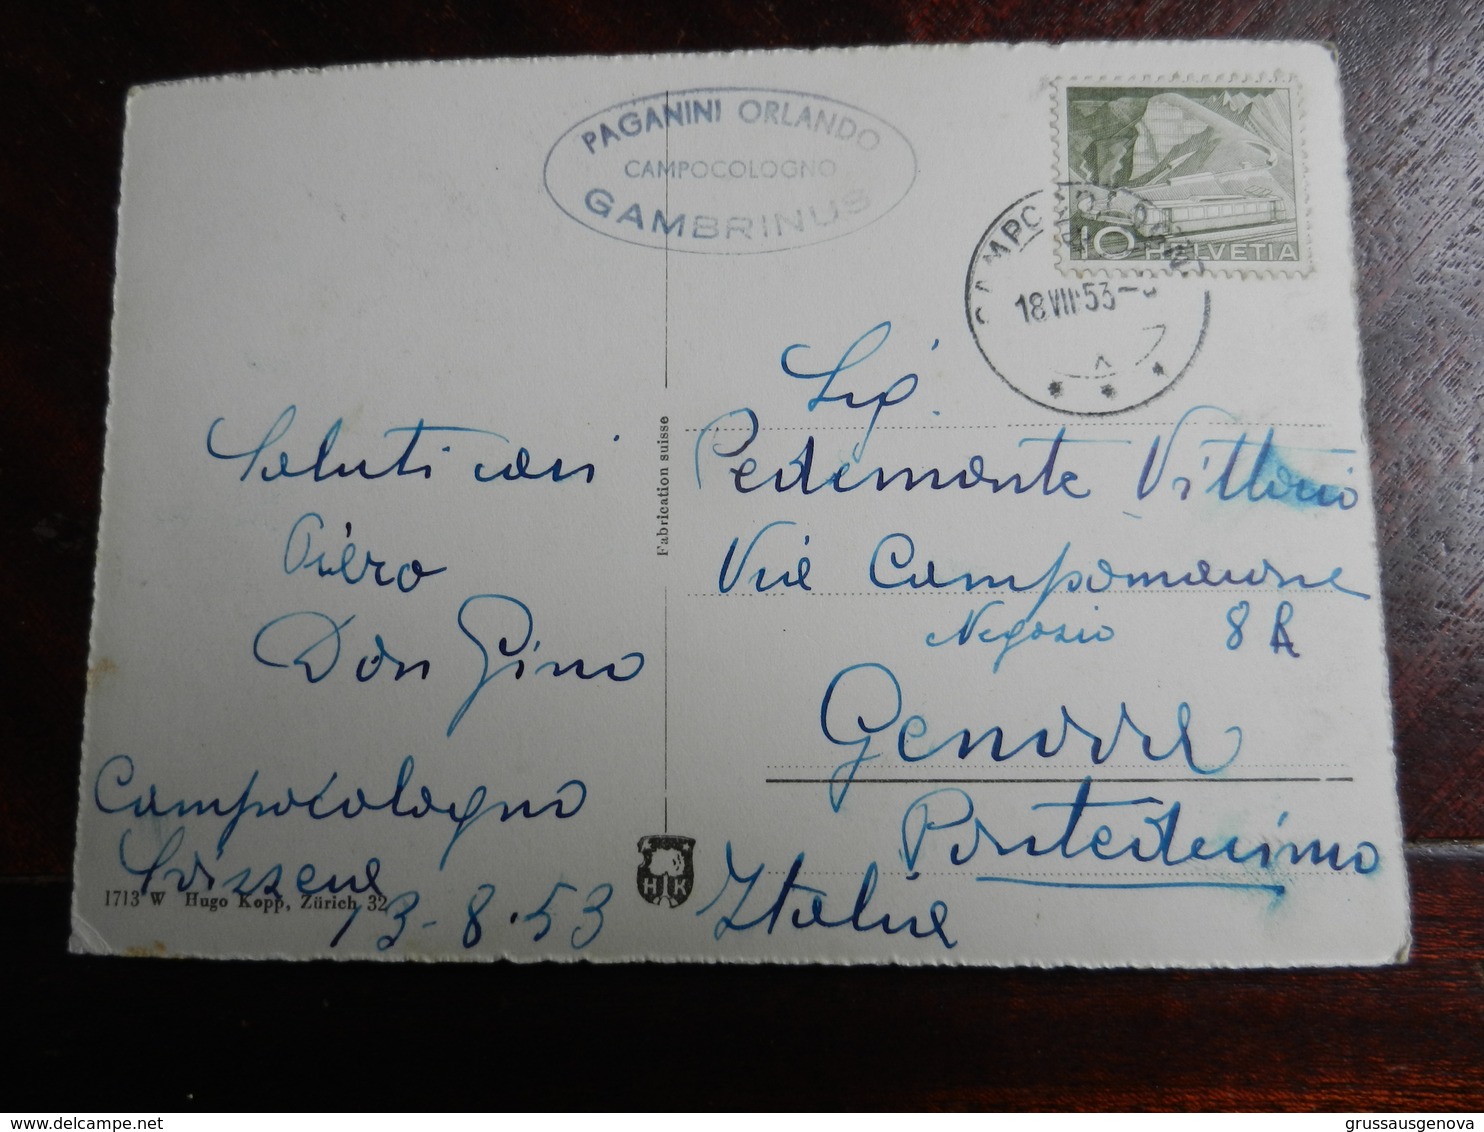 PAGANINI ORLANDO
CAMPOCOLOGNO
GAMBRINUS
10 HELVETIA
CAMPOCOLOGNO
18 VIII 53
Saluti cari
Piero
Don Gino
Campocologno
Svizzera
13-8.53
1713 W Hugo Kopp, Zürich 32
Fabrication suisse
HK
Sig.
Pedemonte Vittorio
Via Campomarone
Negozio 8 R
Genova
Pontedecimo
Italia
grussausgenova